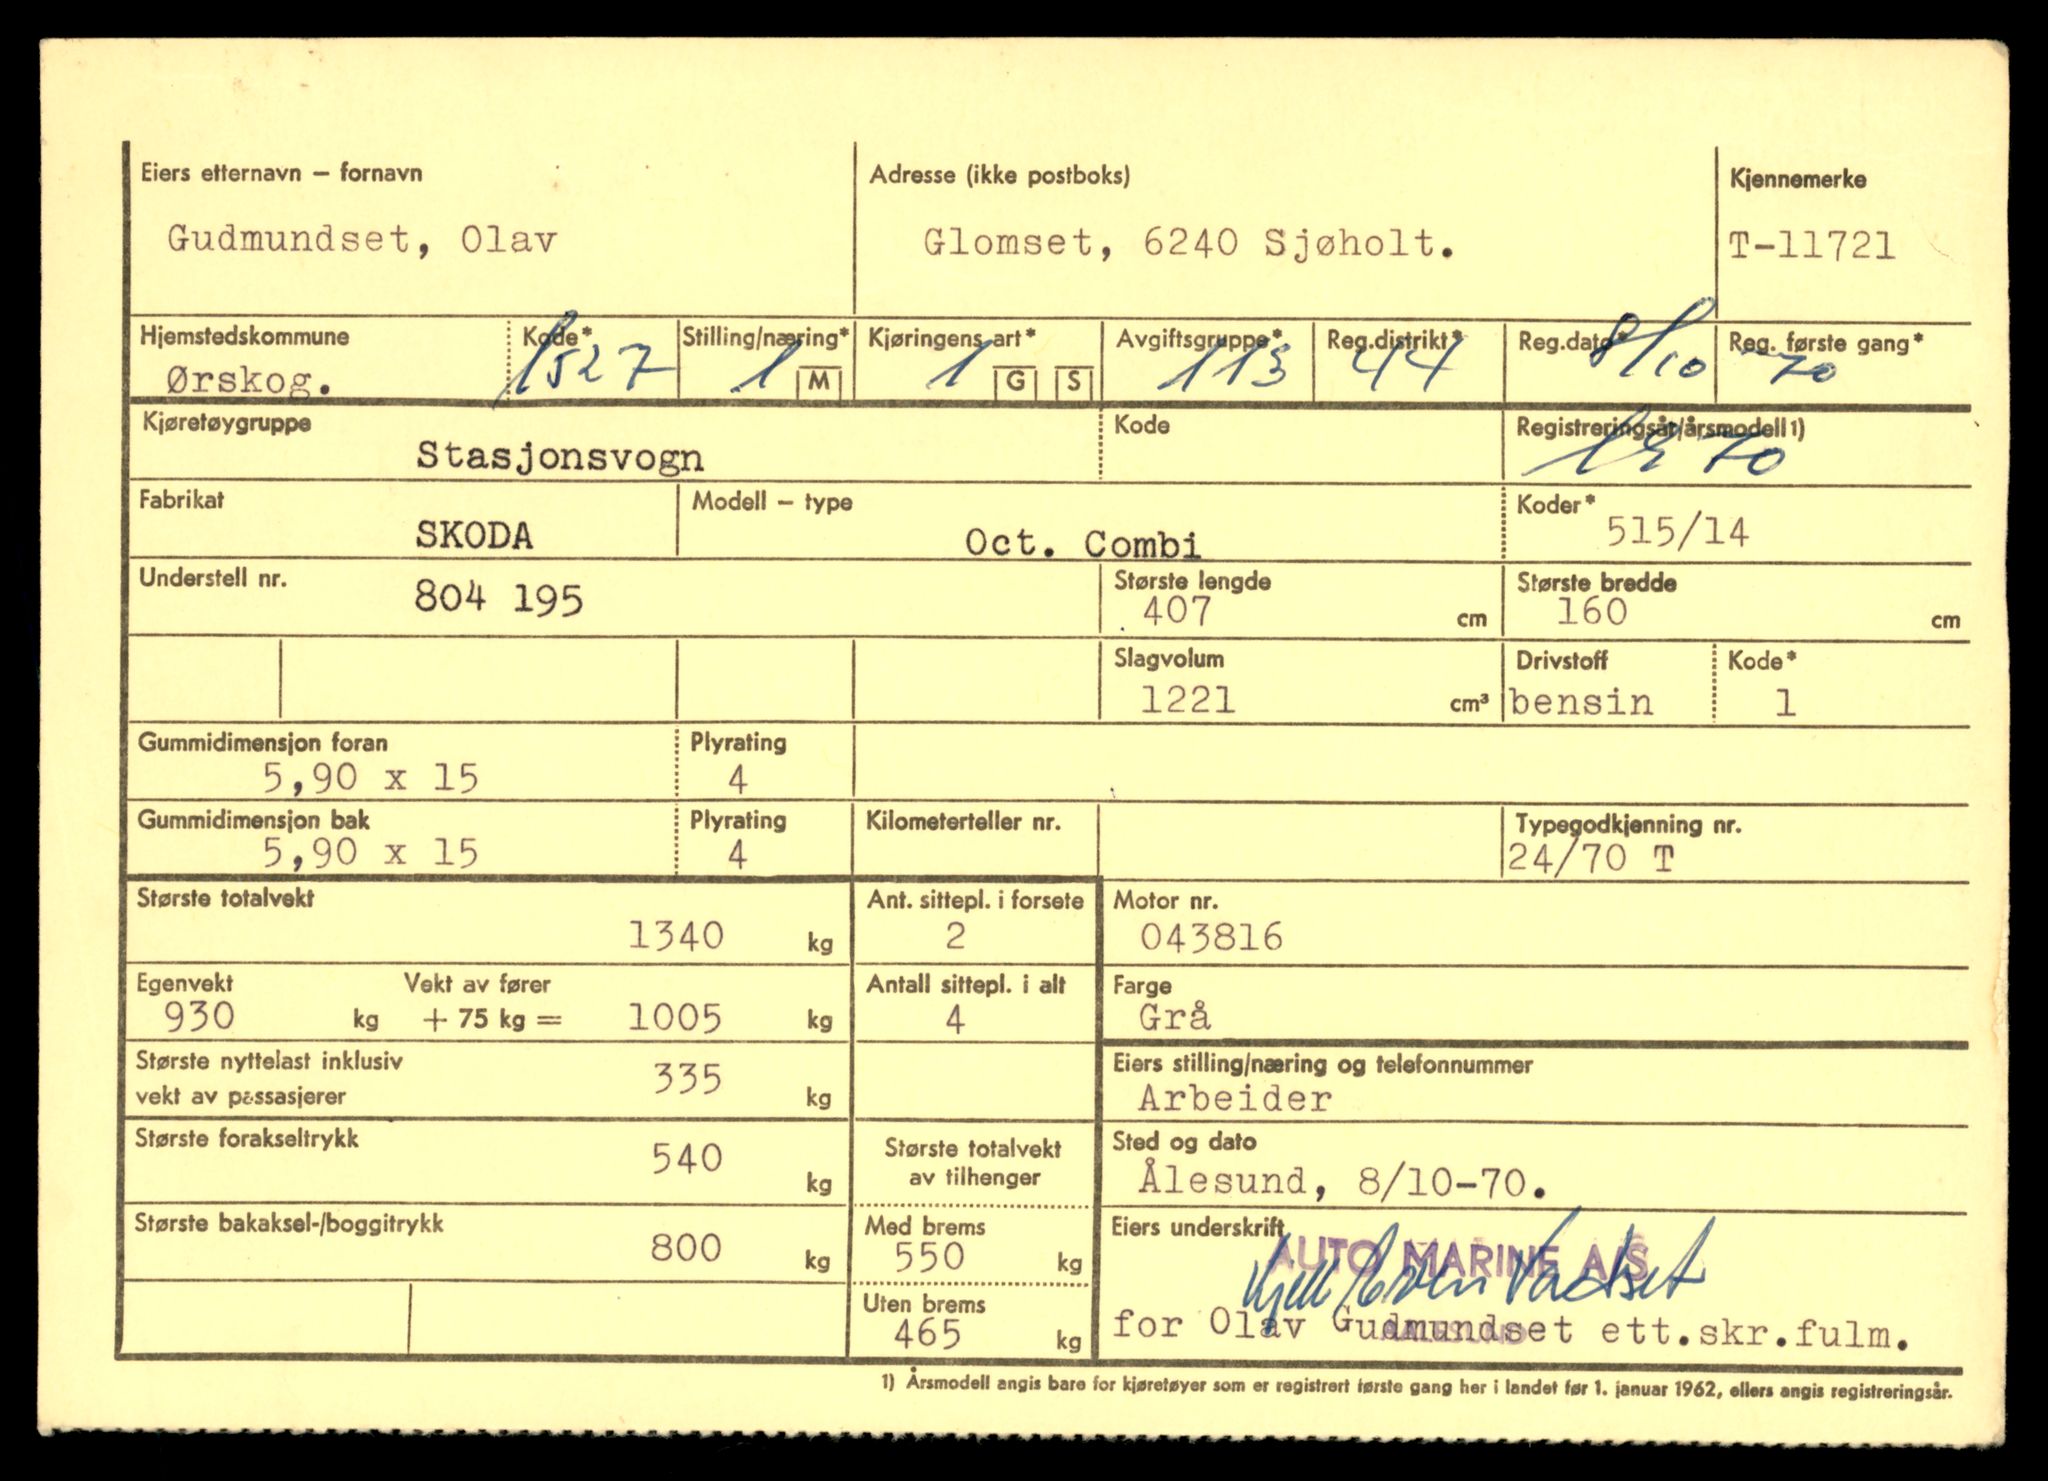 Eiers etternavn – fornavn Adresse (ikke postboks) Kjennemerke
Gudmundset, Olav Glomset, 6240 Sjøholt. T-11721
Hjemstedskommune Kode* Stilling/næring* Kjøringens art* Avgiftsgruppe* Reg.distrikt* Reg.dato* Reg. første gang*
Ørskog. 1527 1 M 1 G S 113 44 8/10 70
Kjøretøygruppe Kode Registreringsår/årsmodell 1)
Stasjonsvogn 1970
Fabrikat Modell – type Koder*
SKODA Oct. Combi 515/14
Understell nr. Største lengde Største bredde
804 195 407 cm 160 cm
Slagvolum Drivstoff Kode*
1221 cm³ bensin 1
Gummidimensjon foran Plyrating
5,90 x 15 4
Gummidimensjon bak Plyrating Kilometerteller nr. Typegodkjenning nr.
5,90 x 15 4 24/70 T
Største totalvekt Ant. sittepl. i forsete Motor nr.
1340 kg 2 043816
Egenvekt Vekt av fører Antall sittepl. i alt Farge
930 kg + 75 kg = 1005 kg 4 Grå
Største nyttelast inklusiv Eiers stilling/næring og telefonnummer
vekt av passasjerer 335 kg Arbeider
Største forakseltrykk Største totalvekt Sted og dato
540 kg av tilhenger Ålesund, 8/10-70.
Største bakaksel-/boggitrykk Med brems Eiers underskrift
800 kg 550 kg AUTO MARINE A/S
Kjell Vadset
Uten brems
465 kg for Olav Gudmundset ett.skr.fulm.
1) Årsmodell angis bare for kjøretøyer som er registrert første gang her i landet før 1. januar 1962, ellers angis registreringsår.